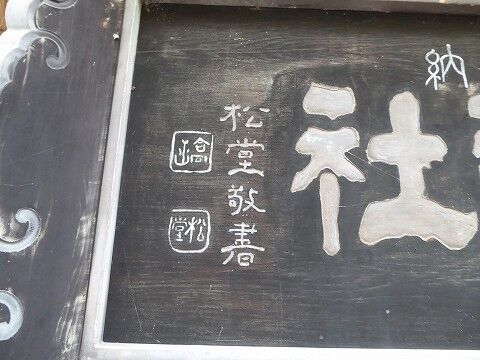 納
社
松堂敬書
松堂